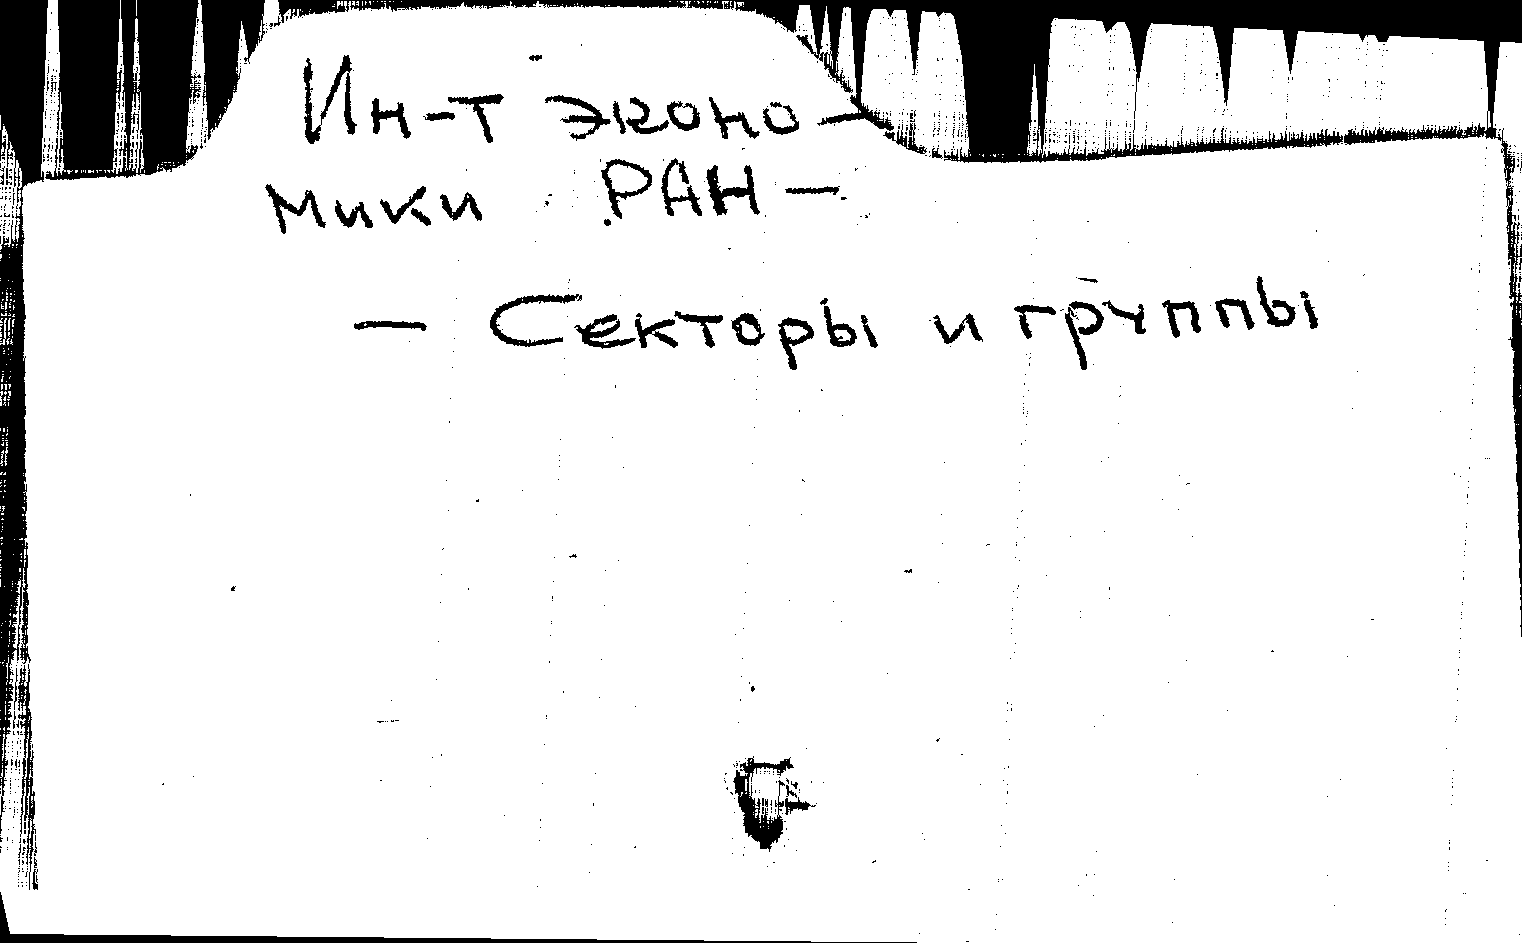 Ин-т эконо-
мики РАН -
- Секторы и группы